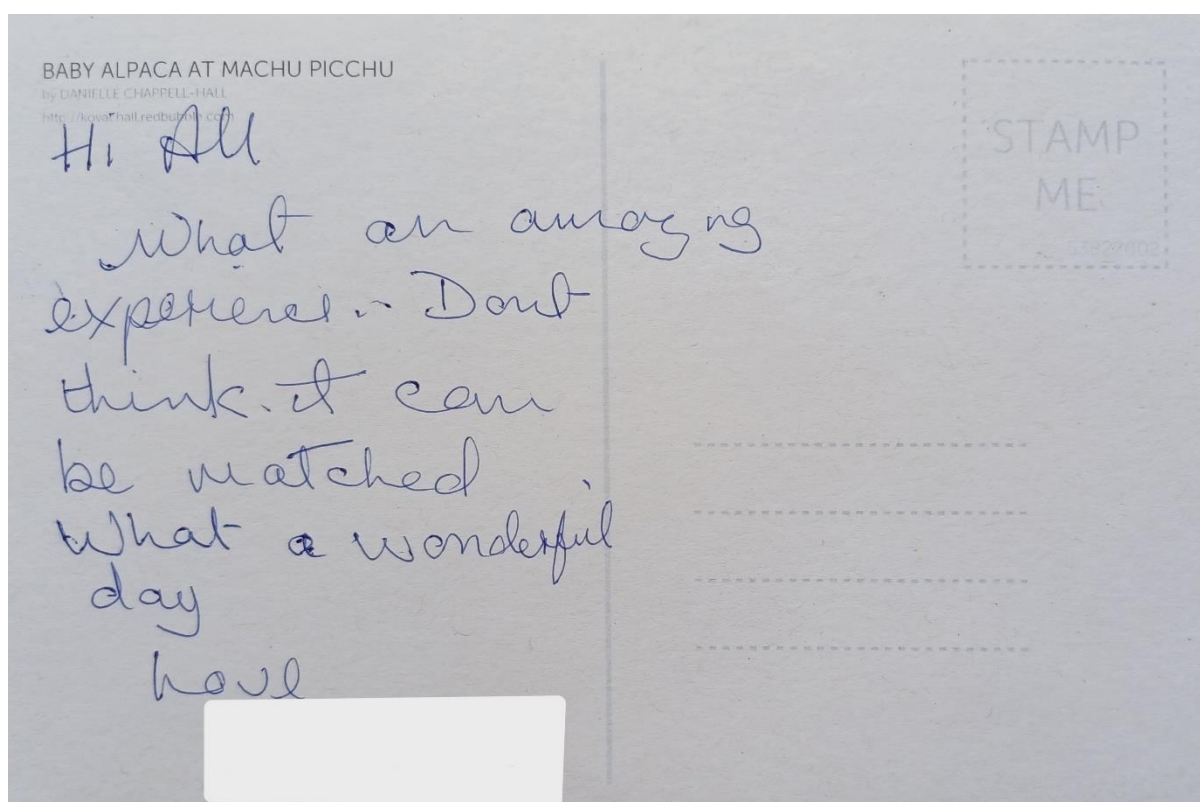 BABY ALPACA AT MACHU PICCHU
by DANIELLE CHAPPELL-HALL
http://kovarhall.redbubble.com
Hi All
What an amazing
experience.. Dont
think it can
be matched
What a wonderful
day
Love
STAMP
ME